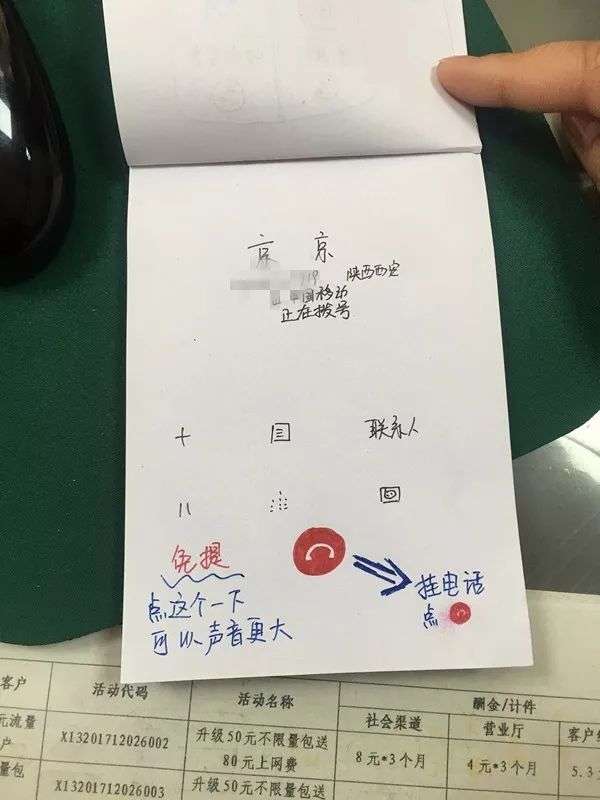 京 京
719 陕西西安
中国移动
正在拨号
十 联系人
免提
挂电话
点这个一下
点
可以声音更大
客户 活动代码 活动名称 酬金/计件
社会渠道 营业厅 客户
元流量 X13201712026002 升级50元不限量包送 8元*3个月 4元*3个月 5.3
户 80元上网费
量包 X13201712026003 升级50元不限量包送